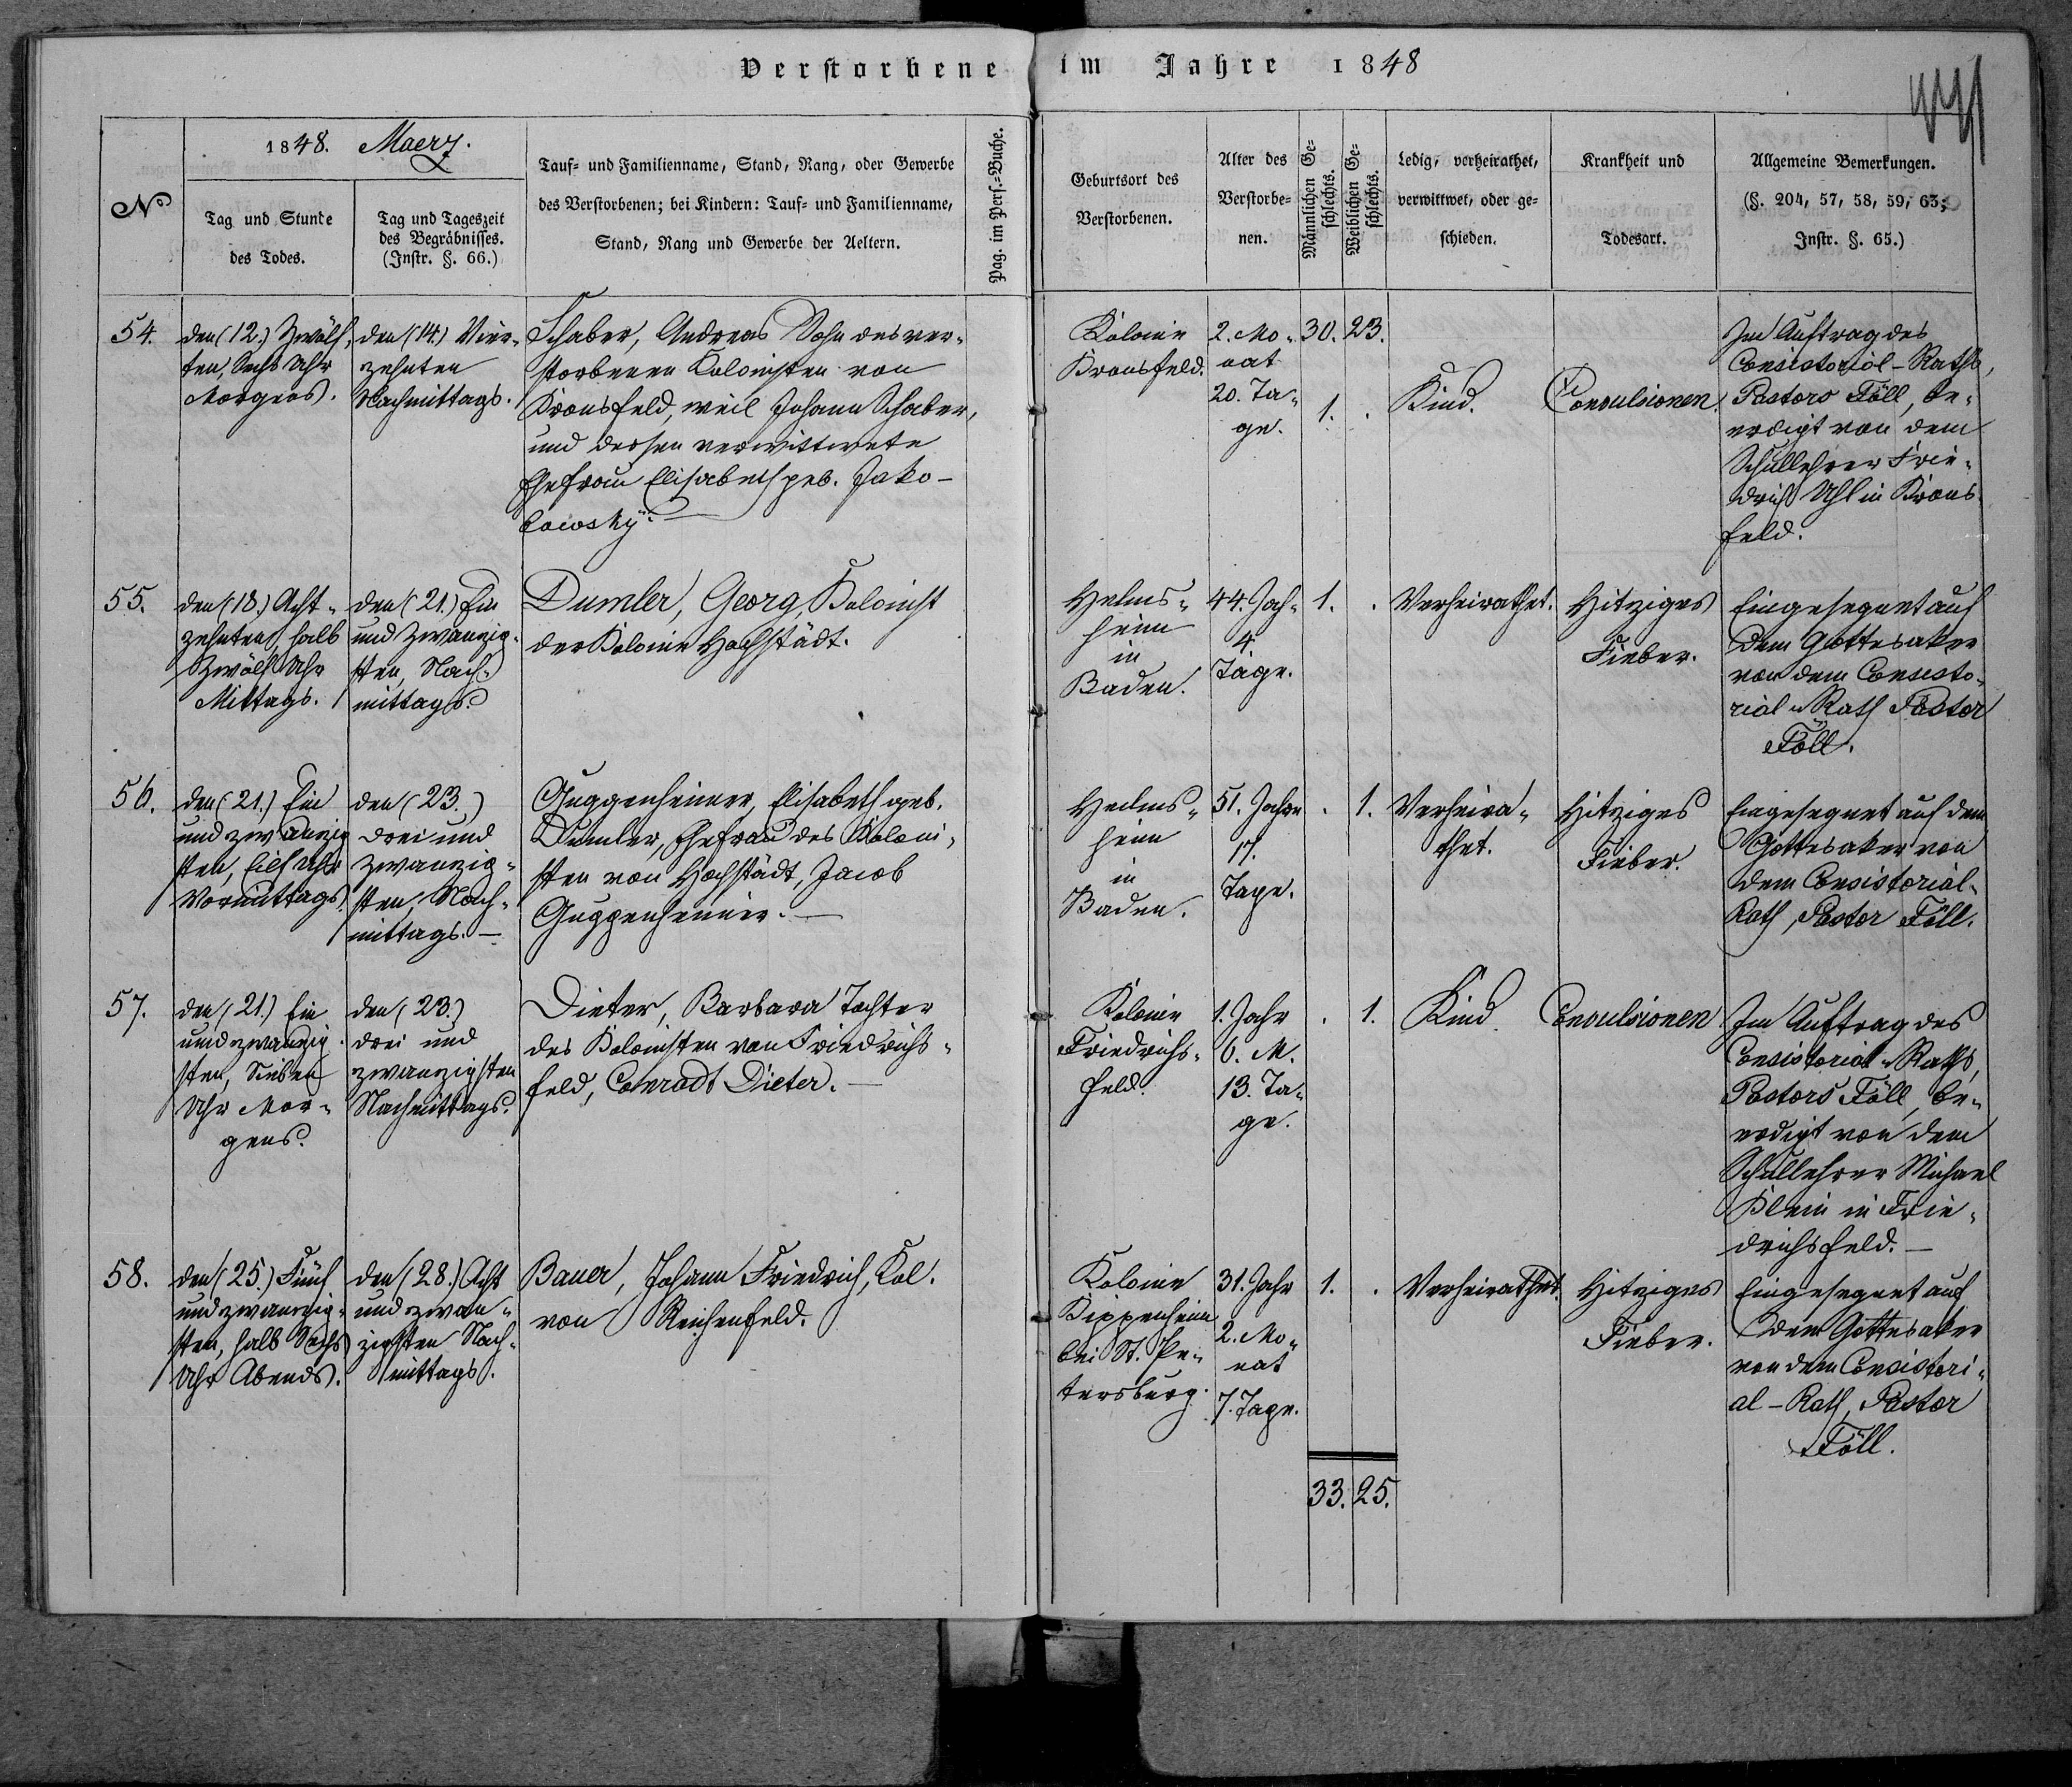 Verstorbene im Jahre 1848
1848. Maerz.
No
Tag und Stunde
des Todes.
Tag und Tageszeit
des Begräbnisses.
(Instr. §. 66.)
Tauf- und Familienname, Stand, Rang, oder Gewerbe
des Verstorbenen; bei Kindern: Tauf- und Familienname,
Stand, Rang und Gewerbe der Aeltern.
Pag. im Pers.-Buche.
Geburtsort des
Verstorbenen.
Alter des
Verstorbe-
nen.
Männlichen Ge-
schlechts.
Weiblichen Ge-
schlechts.
Ledig, verheirathet,
verwittwet, oder ge-
schieden.
Krankheit und
Todesart.
Allgemeine Bemerkungen.
(§. 204, 57, 58, 59, 63;
Instr. §. 65.)
54.
den (12.) Zwölf-
ten, Sechs Uhr
Morgens.
den (14.) Vier-
zehnten
Nachmittags.
Schaber, Andreas Sohn des ver-
storbenen Kolonisten von
Kronsfeld, weil Johann Schaber,
und dessen verwittwete
Ehefrau Elisabeth geb. Jako-
bowsky. —
Kolonie
Kronsfeld.
2. Mo-
nat
20. Ta-
ge.
30. 23.
1. .
Kind.
Convulsionen.
Im Auftrag des
Consistorial-Raths,
Pastors Föll, be-
erdigt von dem
Schullehrer Frie-
drich Uhl in Krons-
feld.
55.
den (18.) Acht-
zehnten, halb
Zwölf Uhr
Mittags.
den (21.) Ein
und zwanzig-
sten, Nach-
mittags.
Dumler, Georg Kolonist
der Kolonie Hochstädt.
Helms-
heim
in
Baden.
44. Jah-
4.
Tage.
1. .
Verheirathet.
Hitziges
Fieber.
Eingesegnet auf
dem Gottesaker
von dem Consisto-
rial-Rath Pastor
Föll.
56.
den (21.) Ein
und zwanzig
sten, Eilf Uhr
Vormittags.
den (23.)
drei und
zwanzig-
sten, Nach-
mittags. —
Guggenheimer, Elisabeth geb.
Dumler, Ehefrau des Koloni-
sten von Hochstädt, Jacob
Guggenheimer. —
Helms-
heim
in
Baden.
51. Jahre
17.
Tage.
. 1.
Verheira-
thet.
Hitziges
Fieber.
Eingesegnet auf dem
Gottesaker von
dem Consistorial-
Rath, Pastor Föll.
57.
den (21.) Ein
und zwanzig-
sten, Sieben
Uhr Mor-
gens.
den (23.)
drei und
zwanzigsten
Nachmittags.
Dieter, Barbara Tochter
des Kolonisten von Friedrichs-
feld, Conradt Dieter. —
Kolonie
Friedrichs-
feld.
1. Jahr
6. M.
13. Ta-
ge.
. 1.
Kind.
Convulsionen
Im Auftrag des
Consistorial-Raths,
Pastors Föll, be-
erdigt von dem
Schullehrer Michael
Klein in Frie-
drichsfeld. —
58.
den (25.) Fünf
und zwanzig-
sten, halb Sechs
Uhr Abends.
den (28.) Acht
und zwan-
zigsten Nach-
mittags.
Bauer, Johann Friedrich, Kol.
von Reichenfeld.
Kolonie
Kippenheim
bei St. Pe-
tersburg.
31. Jahr
2. Mo-
nat
7. Tage.
1. .
Verheirathet.
Hitziges
Fieber.
Eingesegnet auf
dem Gottesaker
von dem Consistori-
al-Rath, Pastor
Föll.
33. 25.